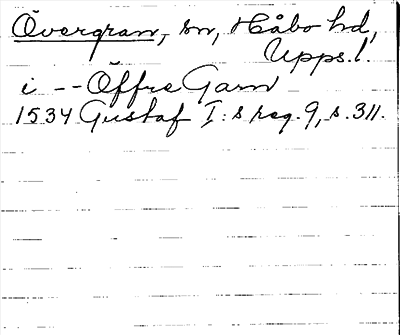 Övergran, sn, Håbo hd,
Upps. l.
i -- Öffre Garn
1534 Gustaf I:s reg. 9, s. 311.